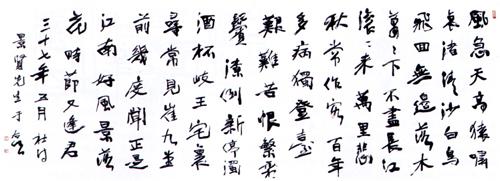 風急天高猿嘯
哀渚清沙白鳥
飛回無邊落木
蕭々下不盡長江
滾々來萬里悲
秋常作客百年
多病獨登臺
艱難苦恨繁霜
鬢潦倒新停濁
酒杯岐王宅裏
尋常見崔九堂
前幾度聞正是
江南好風景落
花時節又逢君
三十七年五月杜詩
景賢先生于